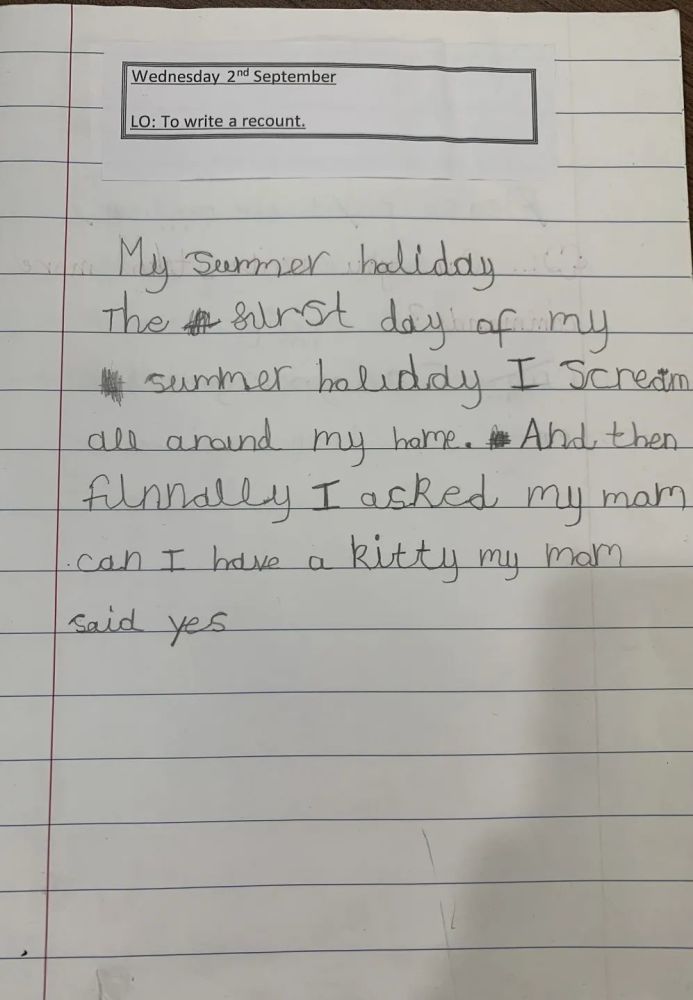 Wednesday 2nd September
LO: To write a recount.
My summer holiday
The surst day of my
summer holiday I Scream
all around my home. And then
finnally I asked my mom
can I have a kitty my mom
said yes